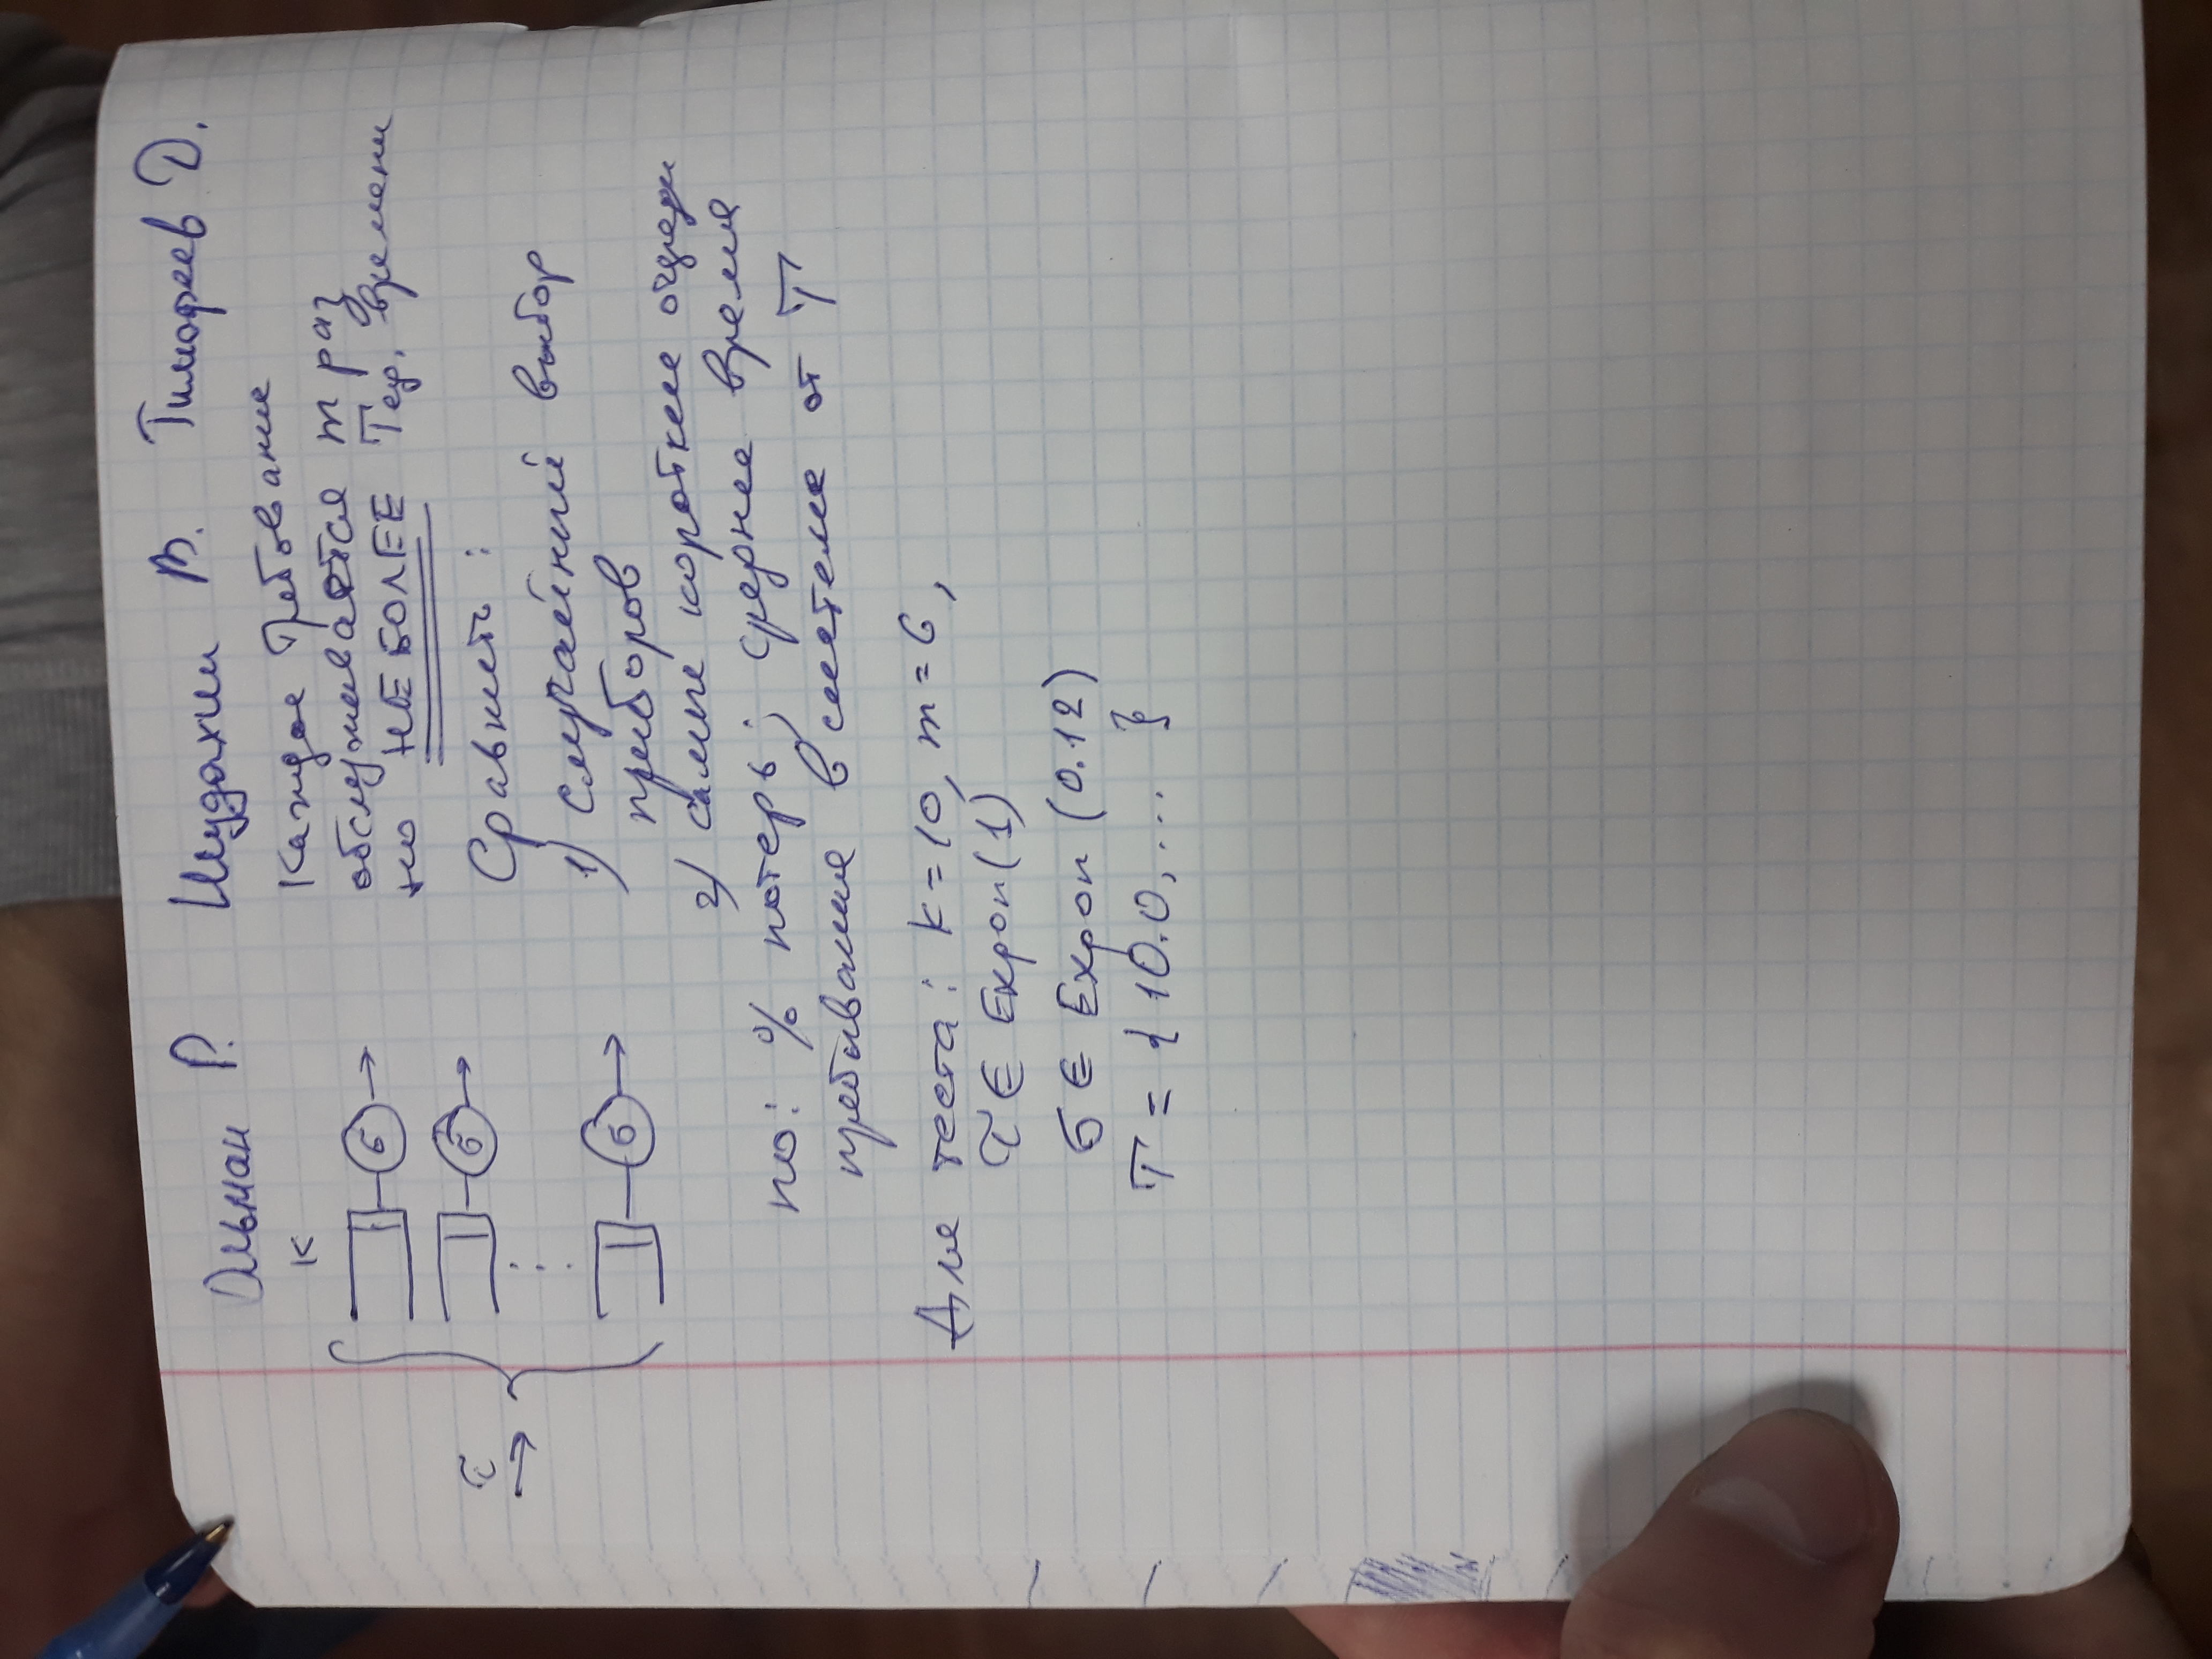 Ольман Р. Шудахин В. Тимофеев Д.
K
Каждое требование
обслуживается m раз
но НЕ БОЛЕЕ T ед. времени
τ
σ
σ
σ
Сравнить:
1) случайный выбор
приборов
2) самые короткие очереди
по: % потерь; среднее время
пребывания в системе от T
Для теста: k=10, m=6,
τ ∈ Expon(1)
σ ∈ Expon(0.12)
T = { 10.0, ... }